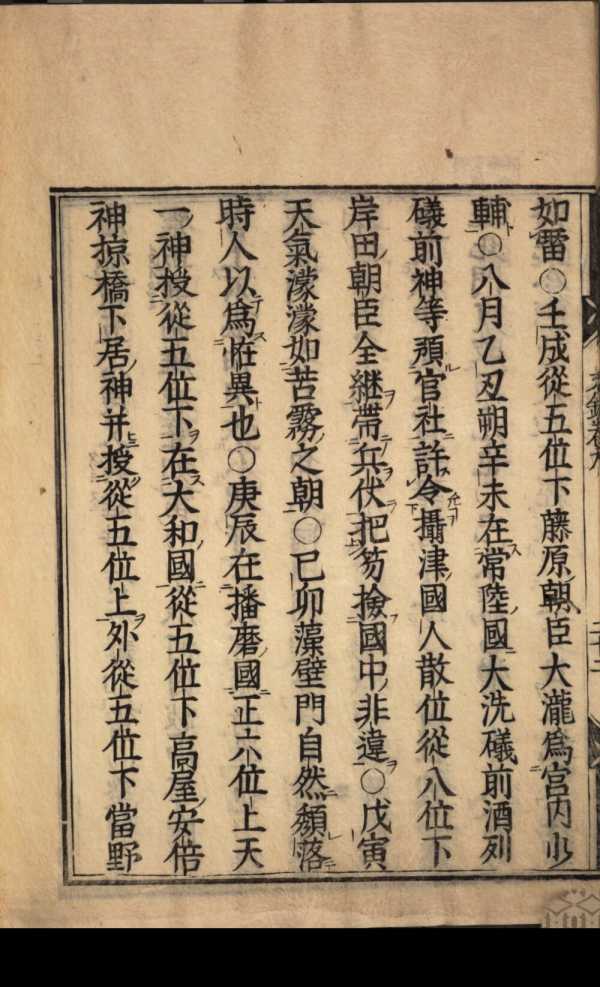 如雷○壬戌從五位下藤原朝臣大瀧爲宮内少
輔○八月乙丑朔辛未在常陸國大洗礒前酒列
礒前神等預官社許令攝津國人散位從八位下
岸田朝臣全継帶兵仗把笏撿國中非違○戊寅
天氣濛濛如苦霧之朝○己卯藻壁門自然頽落
時人以爲恠異也○庚辰在播磨國正六位上天
一神授從五位下在大和國從五位下高屋安倍
神掠橋下居神并授從五位上外從五位下當野